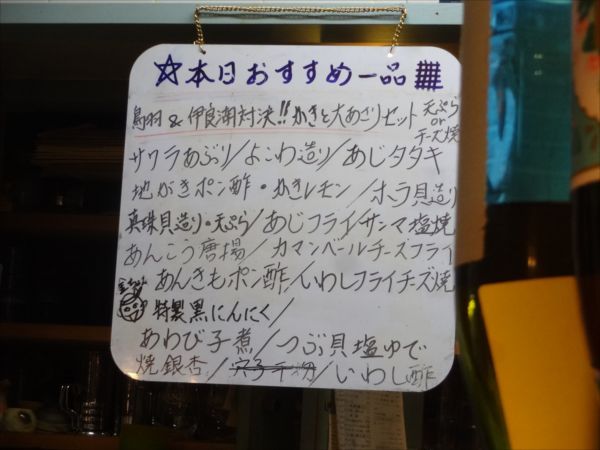 ☆本日おすすめ一品
鳥羽&伊良湖対決!!かきと大あさりセット 天ぷら or チーズ焼
サワラあぶり/よこわ造り/あじタタキ
地がきポン酢・かきレモン/ホラ貝造り
真珠貝造り・天ぷら/あじフライ/サンマ塩焼
あんこう唐揚/カマンベールチーズフライ
あんきもポン酢/いわしフライチーズ焼
特製黒にんにく/
あわび子煮/つぶ貝塩ゆで
焼銀杏/穴子干物/いわし酢